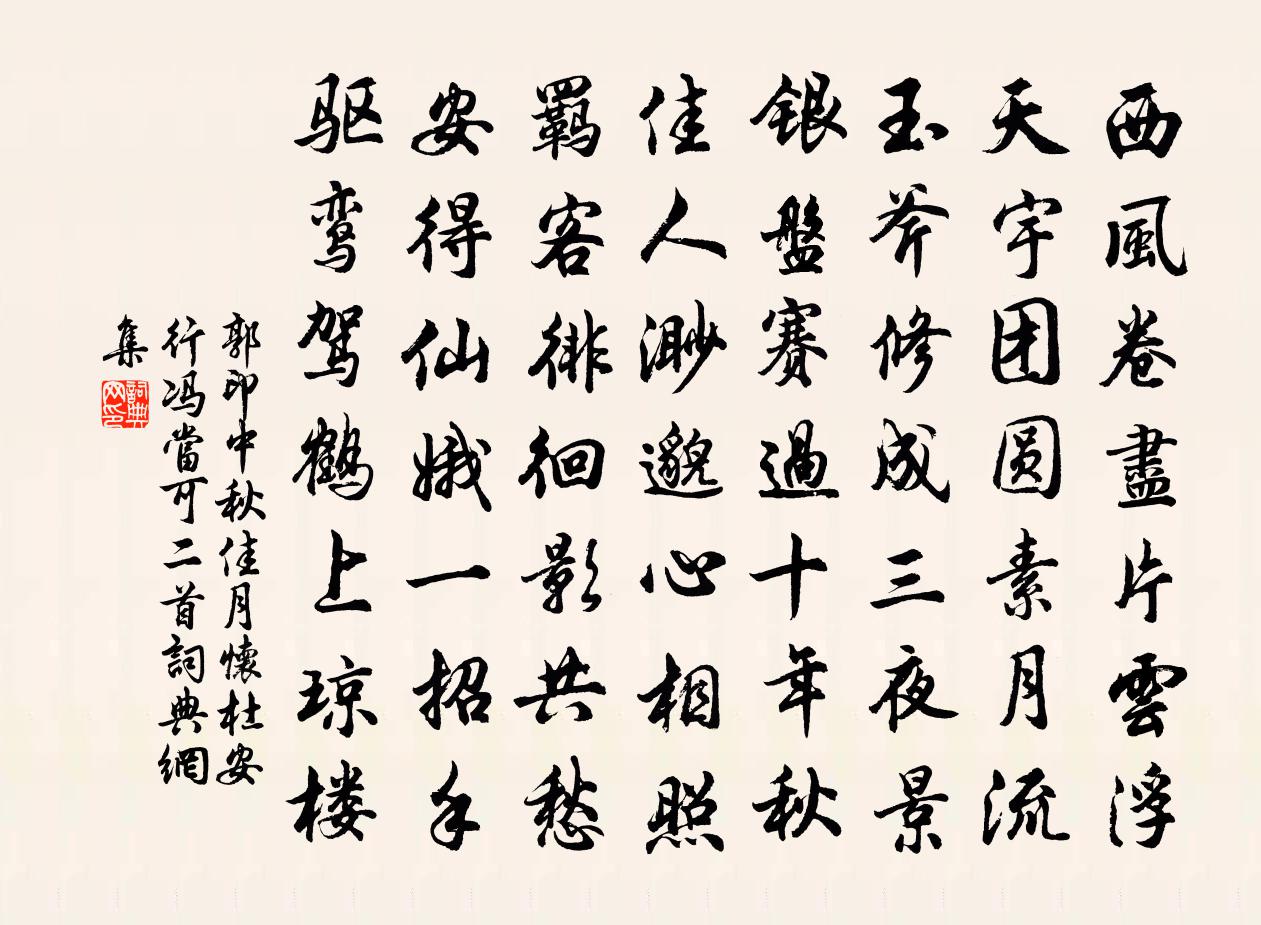 西風卷盡片雲浮
天宇团圆素月流
玉斧修成三夜景
銀盤賽過十年秋
佳人渺邈心相照
羁客徘徊影共愁
安得仙娥一招手
驱鸾驾鹤上琼楼
郭印中秋佳月懷杜安
行冯當可二首詞典網
集
詞典
网印